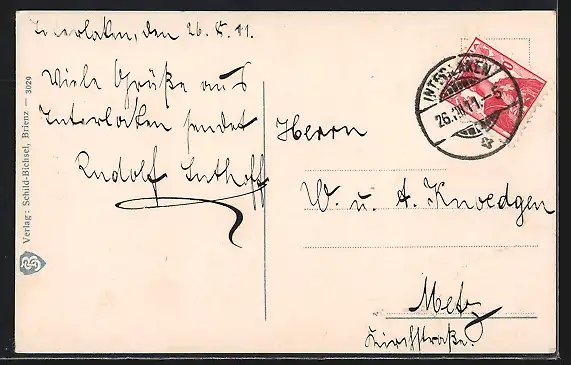 Interlaken, den 26. 8. 11.
Viele Grüße aus
Interlaken sendet
Rudolf Suthoff
Herrn
W. u. A. Knoedgen
Metz
Kirchstraße.
INTERLAKEN
26.VIII.11.-5
Verlag: Schild-Bichsel, Brienz — 3029